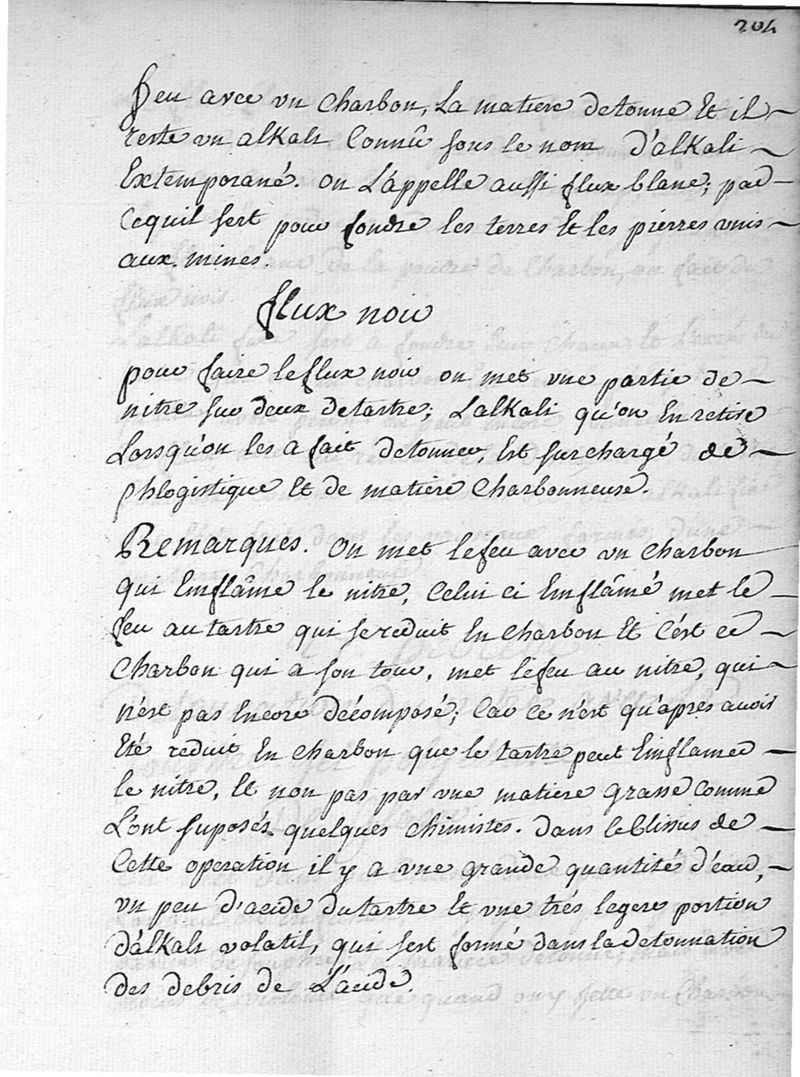 204
feu avec un charbon, La matiere detonne et il
reste un alkali Connû sous le nom d'alkali
Extemporané. on L'appelle aussi flux blanc; par
Cequil sert pour fondre les terres et les pierres unis
aux mines.
flux noir
pour faire le flux noir on met une partie de
nitre sur deux de tartre; Lalkali qu'on En retire
Lorsqu'on les a fait detonner, Est surchargé de
phlogistique Et de matière Charbonneuse.
Remarques. On met le feu avec un charbon
qui Enflâme le nitre, Celui ci Enflâmé met le
feu au tartre qui se reduit En charbon Et C'est ce
Charbon qui a son tour, met le feu au nitre, qui
n'est pas Encore décomposé; Car ce n'est qu'après avoir
Eté reduit En charbon que le tartre peut Enflamer
le nitre, Et non pas par une matiere grasse Comme
L'ont suposés quelques chimistes. dans le Clissus de
Cette operation il y a une grande quantité d'eau,
un peu d'acide du tartre Et une trés legere portion
d'alkali volatil, qui sest formé dans la detonnation
des debris de L'acide.